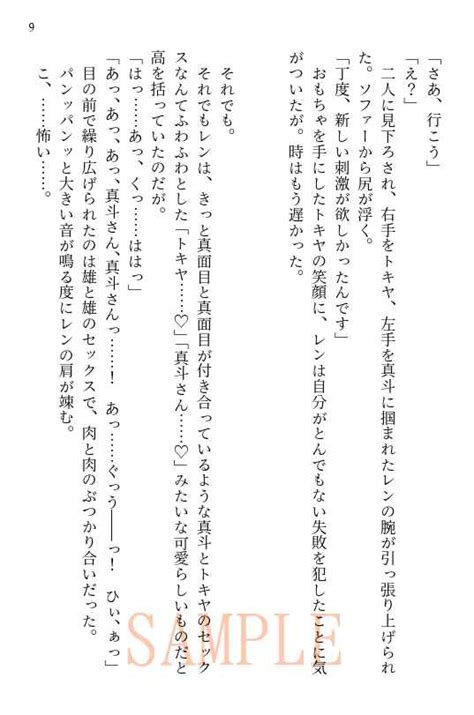 9
「さあ、行こう」
「え？」
　二人に見下ろされ、右手をトキヤ、左手を真斗に掴まれたレンの腕が引っ張り上げられ
た。ソファーから尻が浮く。
「丁度、新しい刺激が欲しかったんです」
　おもちゃを手にしたトキヤの笑顔に、レンは自分がとんでもない失敗を犯したことに気
がついたが。時はもう遅かった。
　それでも。
　それでもレンは、きっと真面目と真面目が付き合っているような真斗とトキヤのセック
スなんてふわふわとした「トキヤ……♡」「真斗さん……♡」みたいな可愛らしいものだと
高を括っていたのだが。
「はっ……あっ、くっ……ははっ」
「あっ、あっ、あっ、真斗さん、真斗さんっ……！　あっ……ぐぅう――っ！　ひぃ、ぁっ」
　目の前で繰り広げられたのは雄と雄のセックスで、肉と肉のぶつかり合いだった。
　パンッパンッと大きい音が鳴る度にレンの肩が竦む。
　こ、……怖い……。
SAMPLE